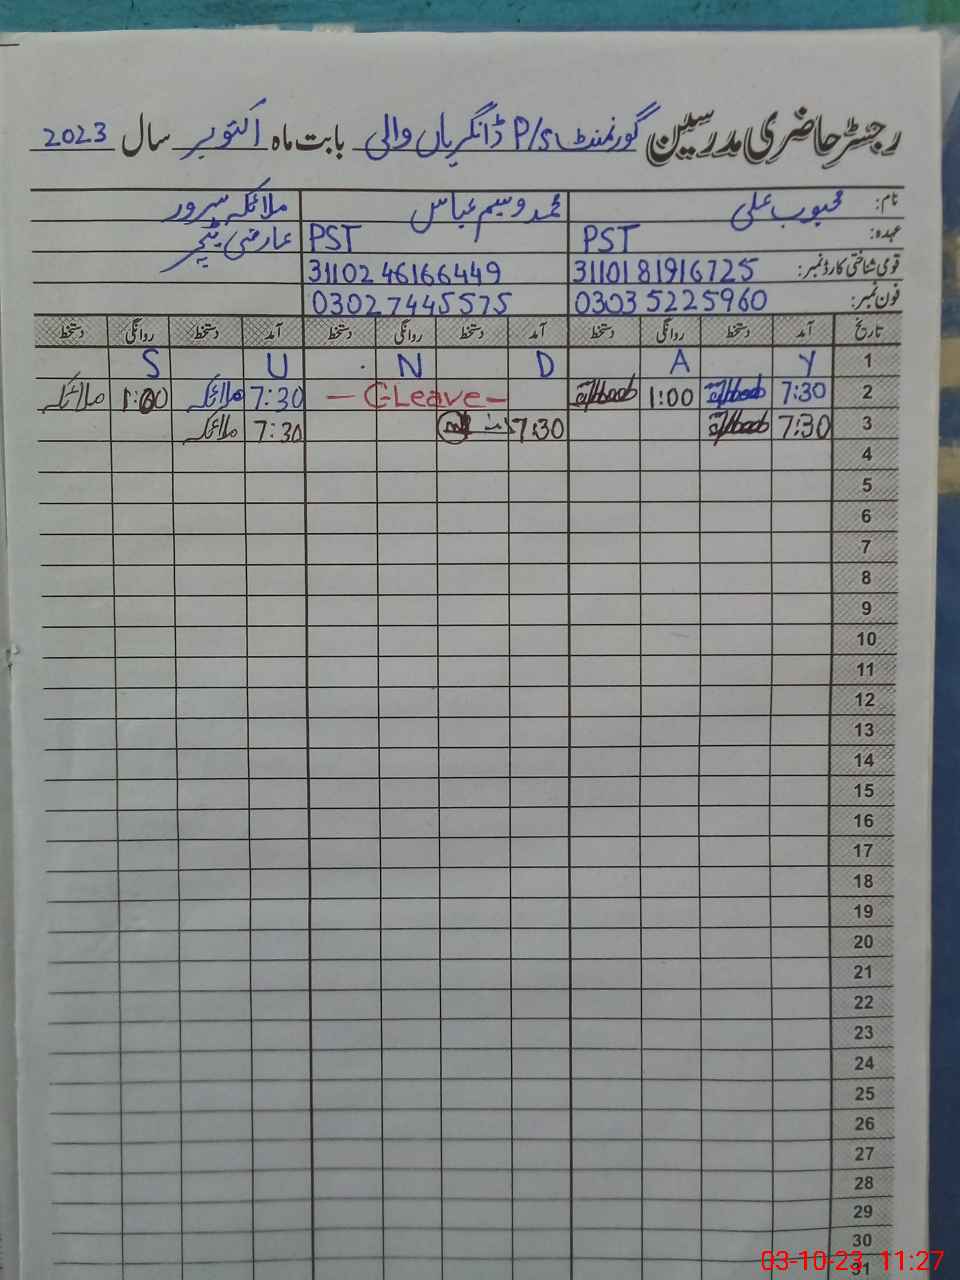 رجسٹر حاضری مدرسین گورنمنٹ P/S ڈانگریاں والی بابت ماہ اکتوبر سال 2023
نام: محبوب علی محمد وسیم عباس ملائکہ سرور
عہدہ: PST PST عارضی ٹیچر
قومی شناختی کارڈ نمبر: 3110181916725 3110246166449
فون نمبر: 03035225960 03027445575
تاریخ آمد دستخط روانگی دستخط آمد دستخط روانگی دستخط آمد دستخط روانگی دستخط
1 S U N D A Y
2 7:30 1:00 — C-Leave — 7:30 ملائکہ 1:00 ملائکہ
3 7:30 7:30 7:30 ملائکہ
4
5
6
7
8
9
10
11
12
13
14
15
16
17
18
19
20
21
22
23
24
25
26
27
28
29
30
31
03-10-23 11:27